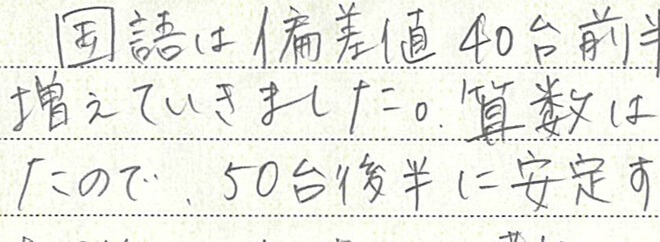 国語は偏差値40台前半
増えていきました。算数は
たので、50台後半に安定す